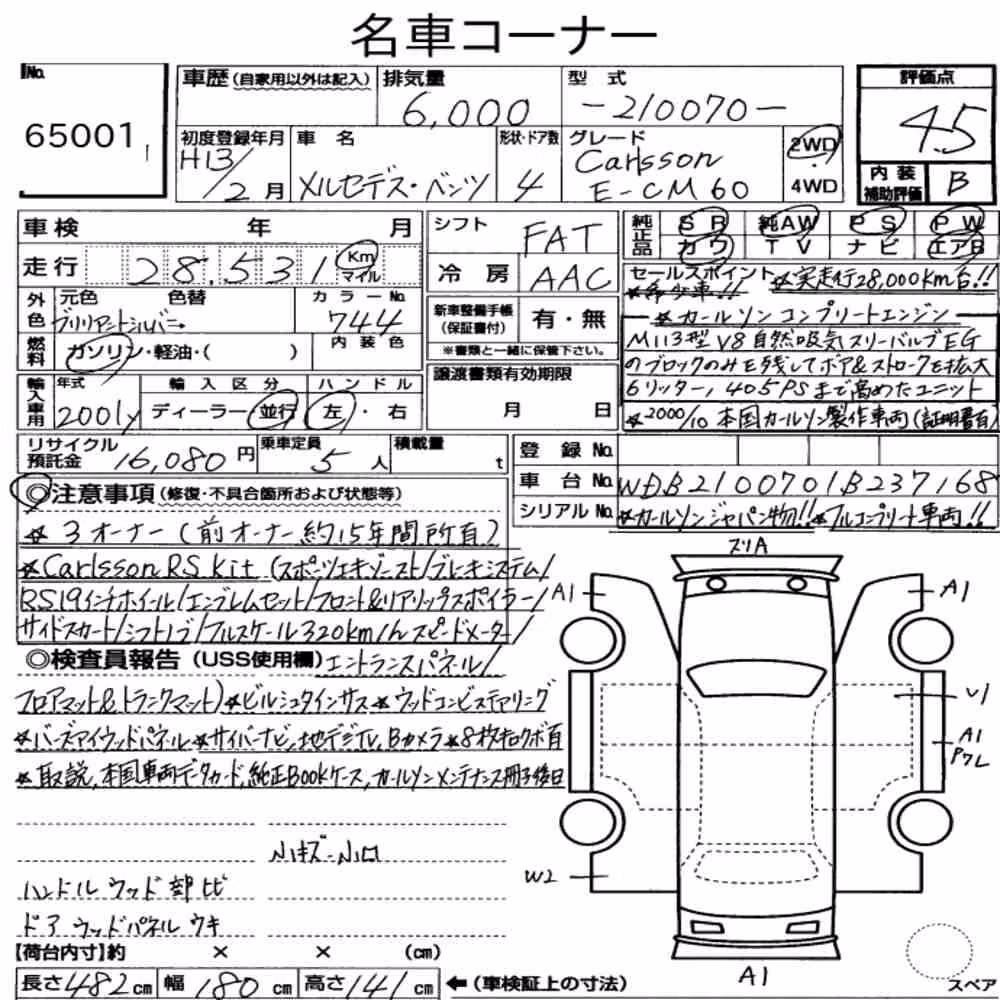 名車コーナー
No.
65001
車歴(自家用以外は記入)
排気量
6,000
型式
-210070-
評価点
4.5
内装補助評価
B
初度登録年月
H13/2月
車名
メルセデス・ベンツ
形状・ドア数
4
グレード
Carlsson
E-CM60
2WD
・
4WD
車検 年 月
走行
28,531
Km
マイル
外色
元色 色替
ブリリアントシルバー
カラーNo.
744
燃料
ガソリン・軽油・( )
内装色
輸入車用
年式
2001y
輸入区分
ディーラー・並行
ハンドル
左・右
シフト
FAT
冷房
AAC
新車整備手帳
(保証書付)
有・無
※書類と一緒に保管下さい。
譲渡書類有効期限
月 日
純正品
SR 純AW PS PW
カワ TV ナビ エアB
セールスポイント ★実走行28,000km台!!
★希少車!!
★カールソンコンプリートエンジン
M113型V8自然吸気スリーバルブEG
のブロックのみを残してボア&ストロークを拡大
6リッター,405PSまで高めたユニット
★2000/10 本国カールソン製作車両(証明書有)
リサイクル預託金
16,080円
乗車定員
5人
積載量
t
登録No.
車台No.
WDB2100701B237168
シリアルNo.
★カールソンジャパン物!! ★フルコンプリート車両!!
◎注意事項(修復・不具合箇所および状態等)
★3オーナー(前オーナー約15年間所有)
★Carlsson RS Kit (スポーツエキゾースト/ブレーキシステム/
RS19インチホイール/エンブレムセット/フロント&リアリップスポイラー/
サイドスカート/シフトノブ/フルスケール320km/hスピードメーター/
◎検査員報告(USS使用欄)エントランスパネル/
フロアマット&トランクマット)★ビルシュタインサス★ウッドコンビステアリング
★バーズアイウッドパネル★サイバーナビ,地デジTV,Bカメラ★8枚キロクボ有
★取説,本国車両データカード,純正BOOKケース,カールソンメンテナンス冊子後日
小キズ・小凹
ハンドル ウッド部ヒビ
ドア ウッドパネル ウキ
【荷台内寸】約 × × (cm)
長さ482cm 幅180cm 高さ141cm ←(車検証上の寸法)
スリA
A1
A1
U1
A1
Pワレ
W2
A1
スペア